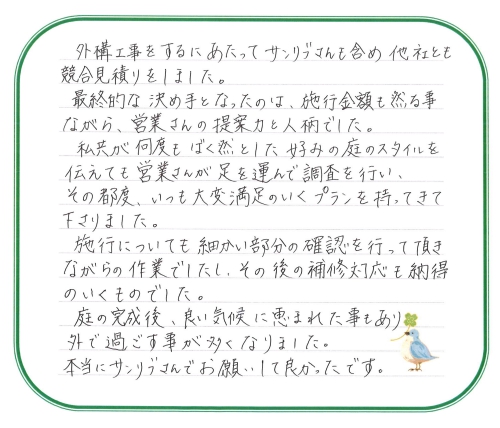 外構工事をするにあたってサンリブさんも含め他社とも
競合見積りをしました。
最終的な決め手となったのは、施行金額も然る事
ながら、営業さんの提案力と人柄でした。
私共が何度もばく然とした好みの庭のスタイルを
伝えても営業さんが足を運んで調査を行い、
その都度、いつも大変満足のいくプランを持ってきて
下さりました。
施行についても細かい部分の確認を行って頂き
ながらの作業でしたし、その後の補修対応も納得
のいくものでした。
庭の完成後、良い気候に恵まれた事もあり
外で過ごす事が多くなりました。
本当にサンリブさんでお願いして良かったです。